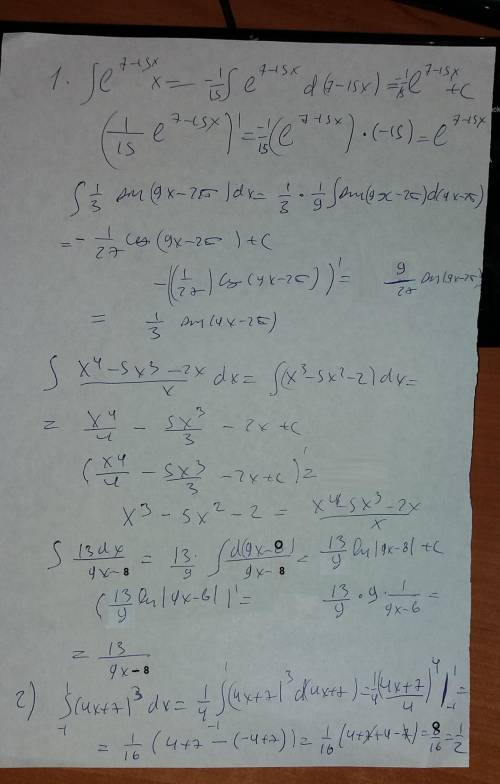 1. ∫e^{7-15x} x = -1/15 ∫e^{7-15x} d(7-15x) = -1/15 e^{7-15x} + C
(1/15 e^{7-15x})' = -1/15 (e^{7-15x}) · (-15) = e^{7-15x}
∫ 1/3 sin(9x-2π) dx = 1/3 · 1/9 ∫ sin(9x-2π) d(9x-π)
= - 1/27 cos(9x-2π) + C
-((1/27) cos(9x-2π))' = 9/27 sin(9x-2π)
= 1/3 sin(9x-2π)
∫ (x^4-5x^3-2x)/x dx = ∫(x^3-5x^2-2) dx =
= x^4/4 - 5x^3/3 - 2x + C
(x^4/4 - 5x^3/3 - 2x + C)' =
x^3 - 5x^2 - 2 = (x^4-5x^3-2x)/x
∫ 13dx/(9x-8) = 13/9 · ∫ d(9x-8)/(9x-8) = 13/9 ln|9x-8| + C
(13/9 ln|9x-6|)' = 13/9 · 9 · 1/(9x-6) =
= 13/(9x-8)
2) ∫_{-1}^{1} (4x+7)^3 dx = 1/4 ∫_{-1}^{1} (4x+7)^3 d(4x+7) = 1/4 (4x+7)^4/4 |_{-1}^{1} =
= 1/16 (4+7 - (-4+7)) = 1/16 (4+7+4-7) = 8/16 = 1/2